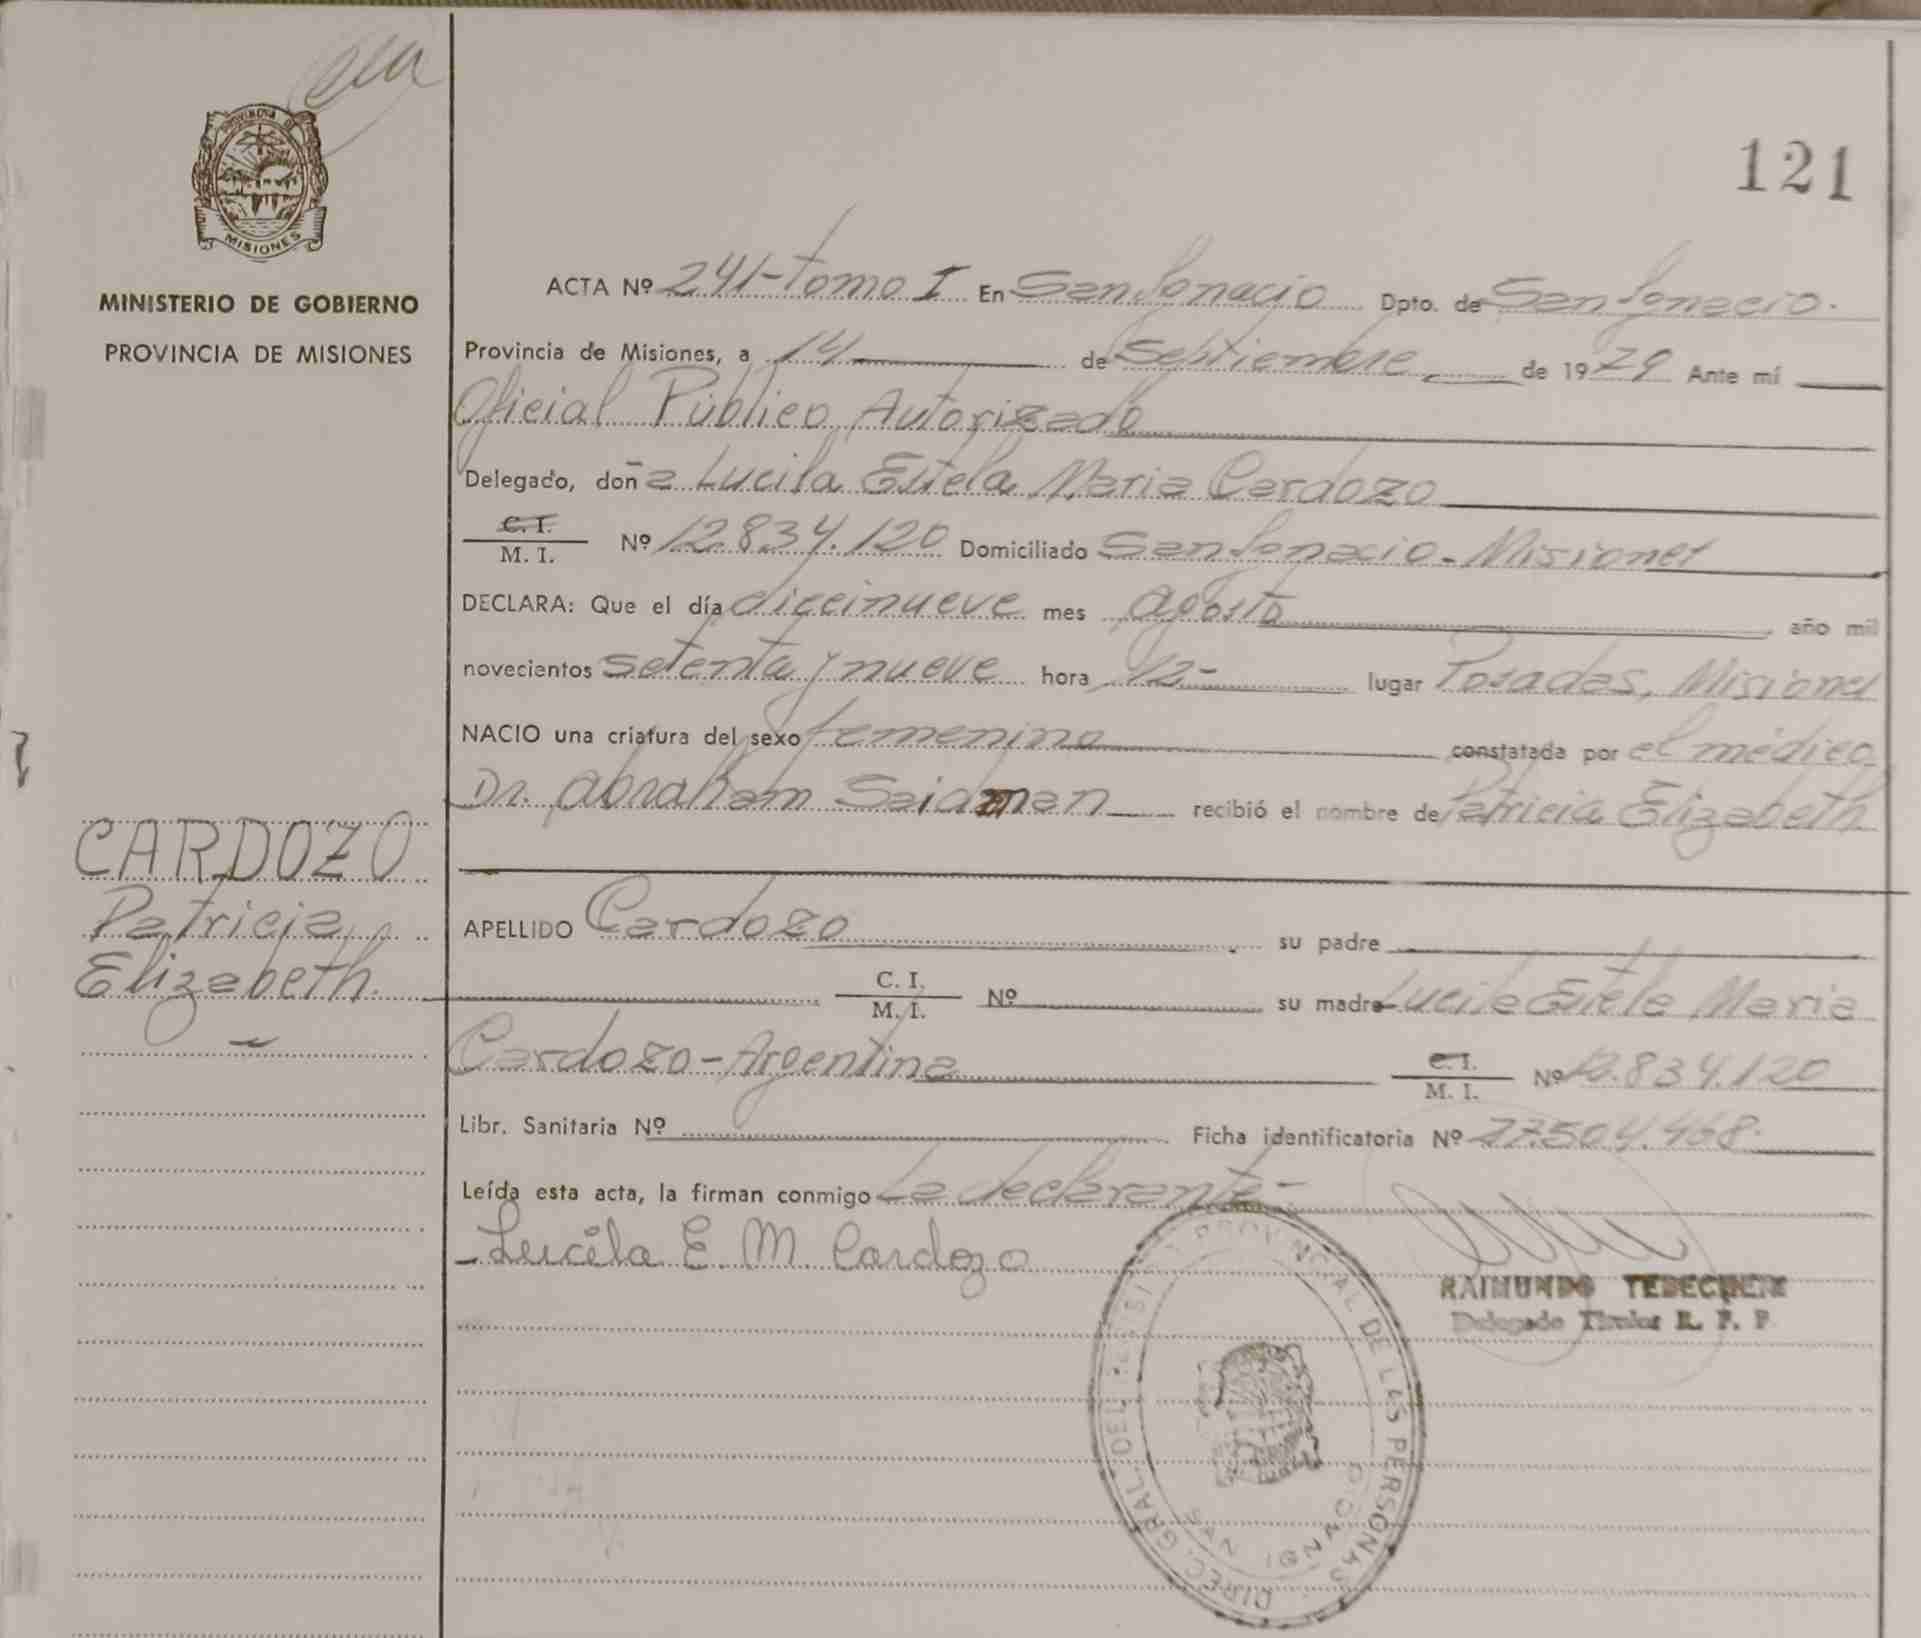 PROVINCIA DE
MISIONES
MINISTERIO DE GOBIERNO
PROVINCIA DE MISIONES
121
ACTA Nº 241-Tomo I En San Ignacio Dpto. de San Ignacio.
Provincia de Misiones, a 14 de Septiembre de 1979 Ante mí
Oficial Público Autorizado
Delegado, doña Lucila Estela Maria Cardozo
C. I.
M. I. Nº 12.834.120 Domiciliado San Ignacio - Misiones
DECLARA: Que el día diecinueve mes agosto año mil
novecientos setenta y nueve hora 12- lugar Posadas, Misiones
NACIO una criatura del sexo femenino constatada por el médico
Dr. Abraham Saidman recibió el nombre de Patricia Elizabeth
CARDOZO
Patricia
Elizabeth.
APELLIDO Cardozo su padre
C. I.
M. I. Nº su madre Lucila Estela Maria
Cardozo - Argentina C. I.
M. I. Nº 12.834.120
Libr. Sanitaria Nº Ficha identificatoria Nº 27.504.468.
Leída esta acta, la firman conmigo La declarante-
Lucila E. M. Cardozo
RAIMUNDO
Delegado Titular R. P. P.
DIREC. GRAL. DEL REGISTRO PROVINCIAL DE LAS PERSONAS
SAN IGNACIO